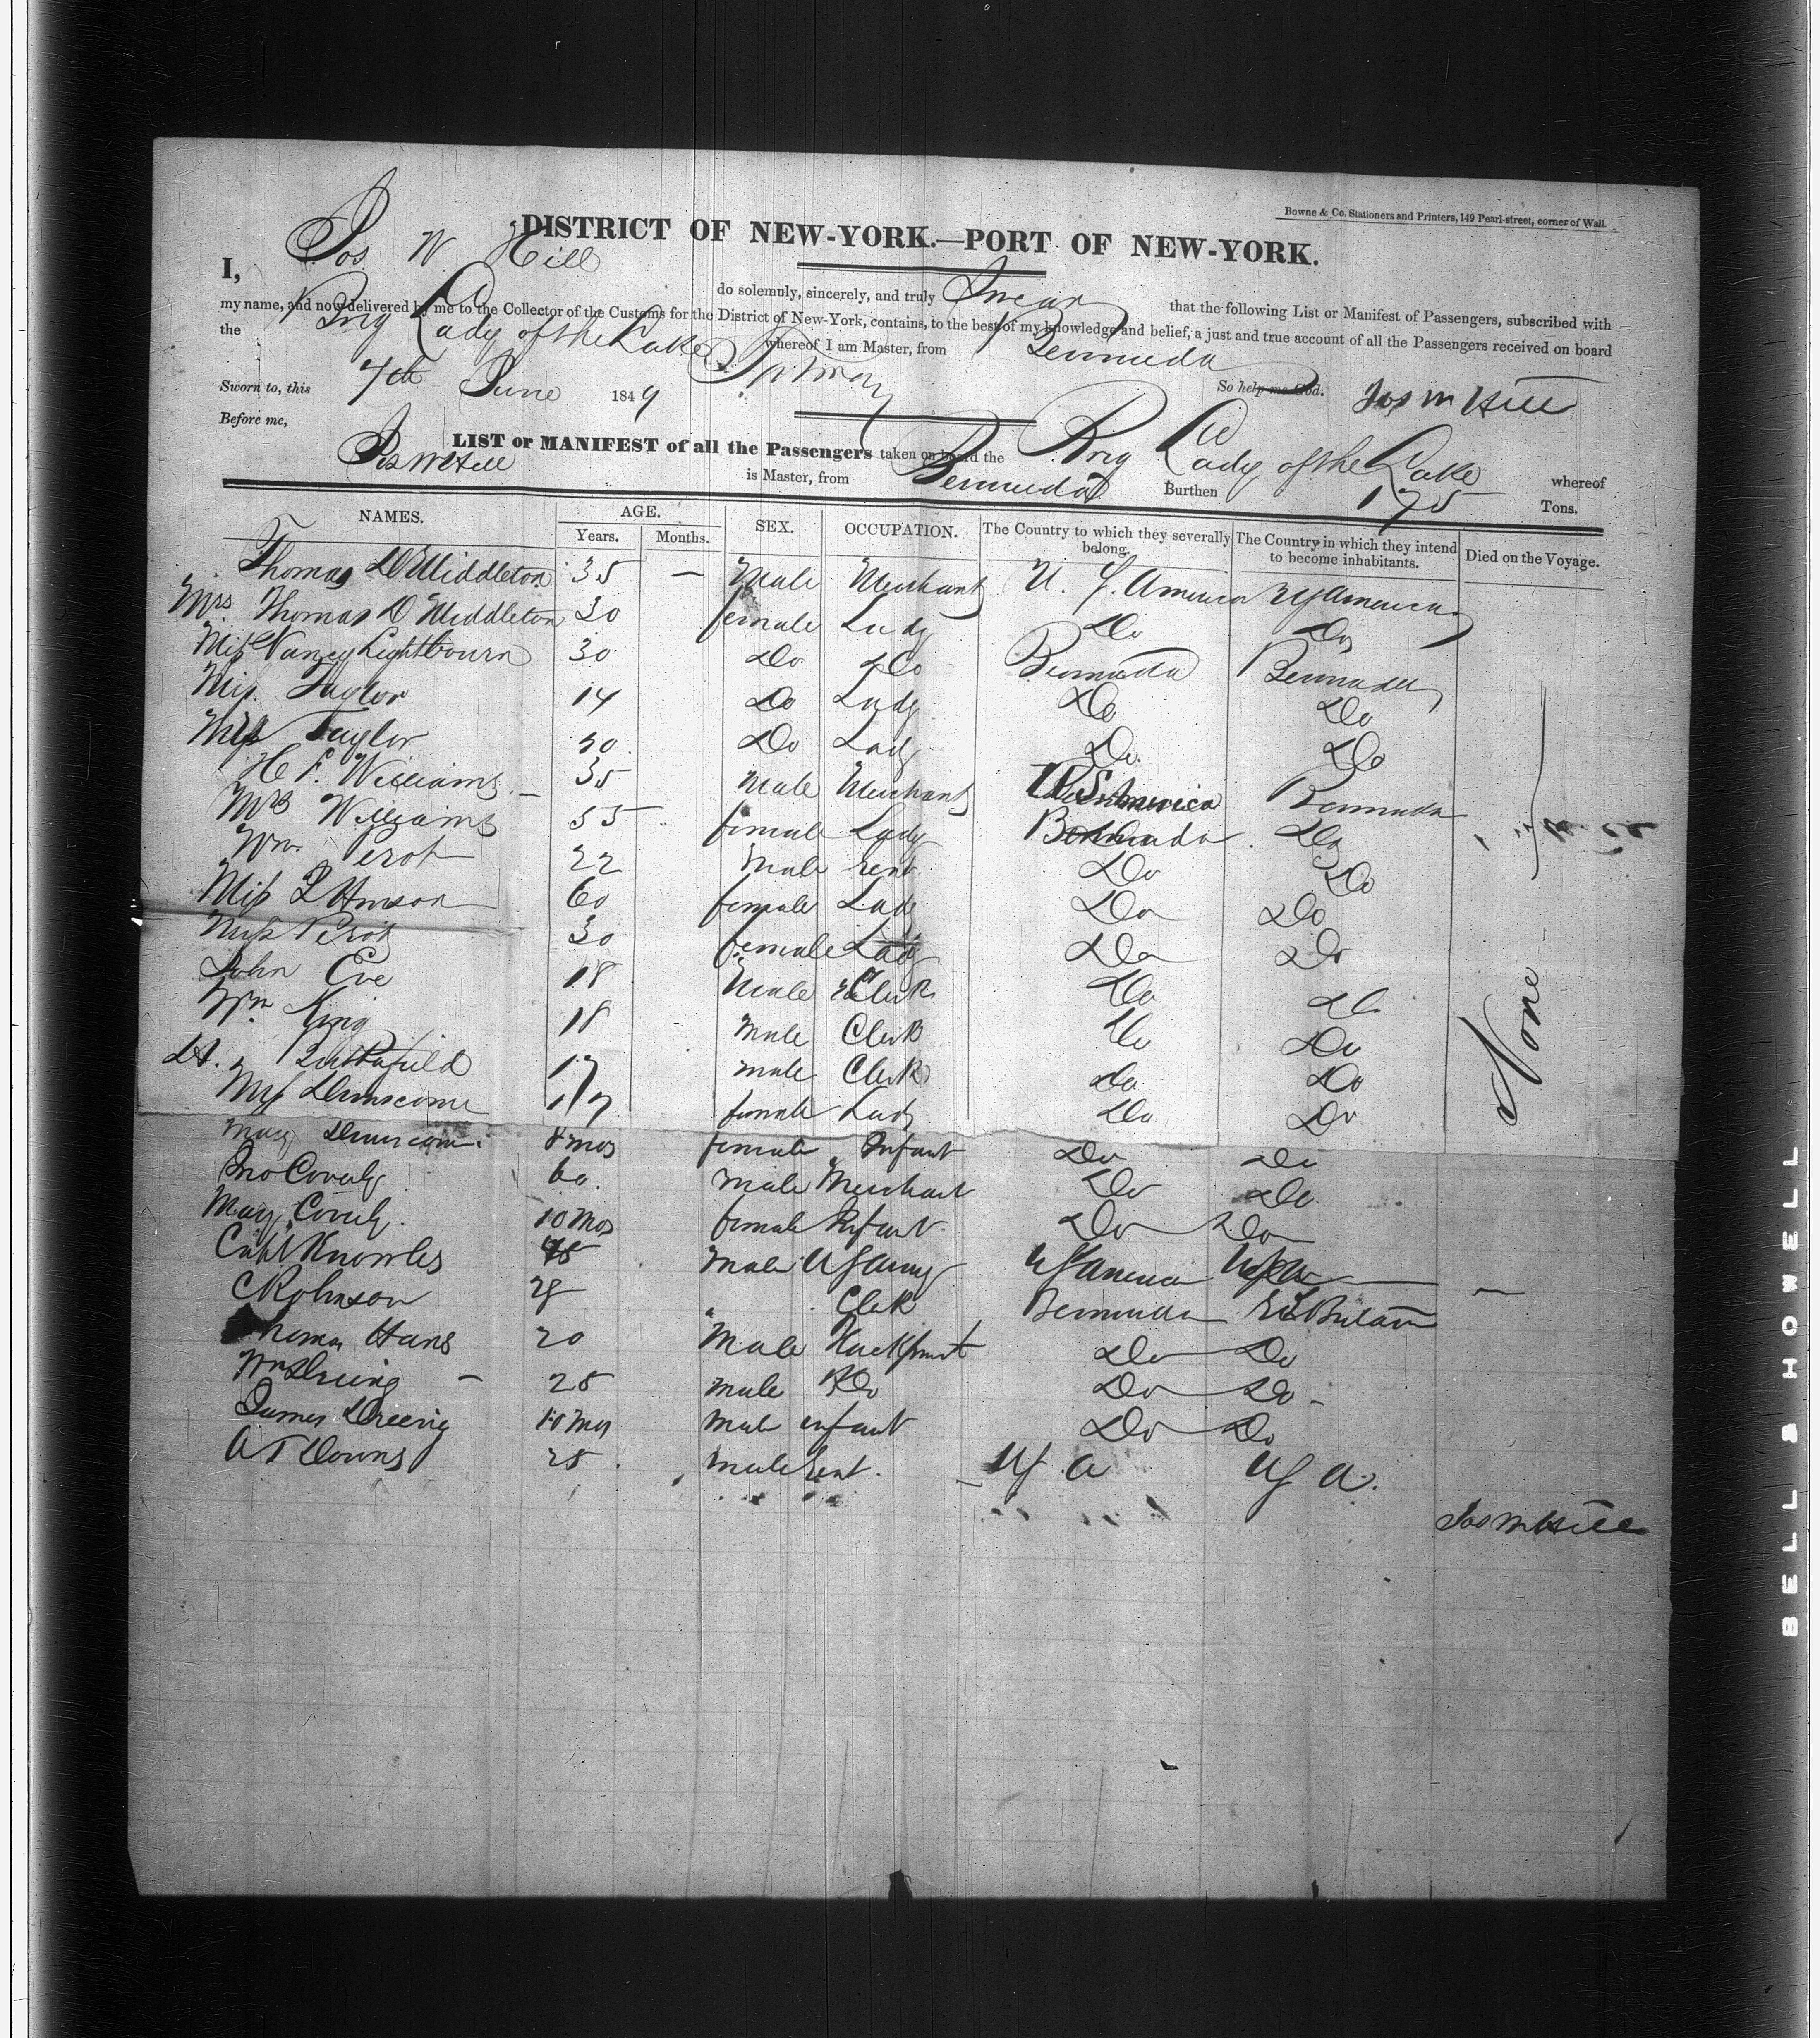 Bowne & Co. Stationers and Printers, 149 Pearl-street, corner of Wall.
DISTRICT OF NEW-YORK.—PORT OF NEW-YORK.
I, Jos W Hill do solemnly, sincerely, and truly Swear that the following List or Manifest of Passengers, subscribed with
my name, and now delivered by me to the Collector of the Customs for the District of New-York, contains, to the best of my knowledge and belief, a just and true account of all the Passengers received on board
the Brig Lady of the Lake whereof I am Master, from Bermuda
Sworn to, this 7th June 1849 So help me God. Jos W Hill
Before me,
LIST or MANIFEST of all the Passengers taken on board the Brig Lady of the Lake whereof
Jos W Hill is Master, from Bermuda Burthen 175 Tons.
NAMES. AGE. Years. Months. SEX. OCCUPATION. The Country to which they severally belong. The Country in which they intend to become inhabitants. Died on the Voyage.
Thomas D Middleton 35 — Male Merchant U. S. America U S America
Mrs Thomas D Middleton 30 female Lady Do Do
Miss Nancy Lightbourn 30 Do Do Bermuda Bermuda
Miss Taylor 14 Do Lady Do Do
Miss Taylor 30 Do Lady Do Do
H F. Williams 35 Male Merchant U S America Bermuda
Mrs Williams 55 female Lady Bermuda Do
Wm Perot 22 Male Do Do
Miss 60 female Lady Do Do
Miss Perot 30 female Lady Do Do
John Eve 18 Male Clerk Do Do
Wm King 18 male Clerk Do Do
17 male Clerk Do Do
Dunscomb female Lady Do Do
Mary Dunscomb 8 mos female Infant Do Do
Jno 60 male Merchant Do Do
Mary 10 Mos female Infant Do Do
Capt Knowles 45 Male U S Army U S America U S A —
C Robinson 28 Clerk Bermuda Gt Britain
20 Male Do Do
Wm 25 male Do Do Do
James 10 Mos male infant Do Do
A T Downs 25 male U S A U S A.
None
Jos W Hill
BELL & HOWELL